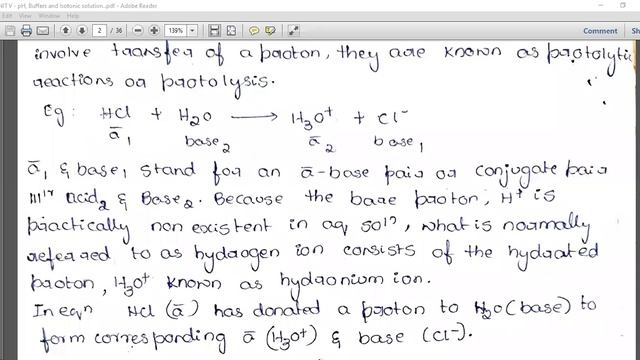 NIT V - pH, Buffers and Isotonic solution..pdf - Adobe Reader
Edit View Window Help
2 / 36 139% Comment Share
involve transfer of a proton, they are known as protolytic
reactions or protolysis.
Eg: HCl + H2O ⟶ H3O+ + Cl-
ā1 base2 ā2 base1
ā1 & base1 stand for an ā-base pair or conjugate pair
lllly acid2 & Base2. Because the bare proton, H+ is
practically non existent in aq soln, what is normally
referred to as hydrogen ion consists of the hydrated
proton, H3O+ known as hydronium ion.
In eqn HCl (ā) has donated a proton to H2O (base) to
form corresponding ā (H3O+) & base (Cl-).